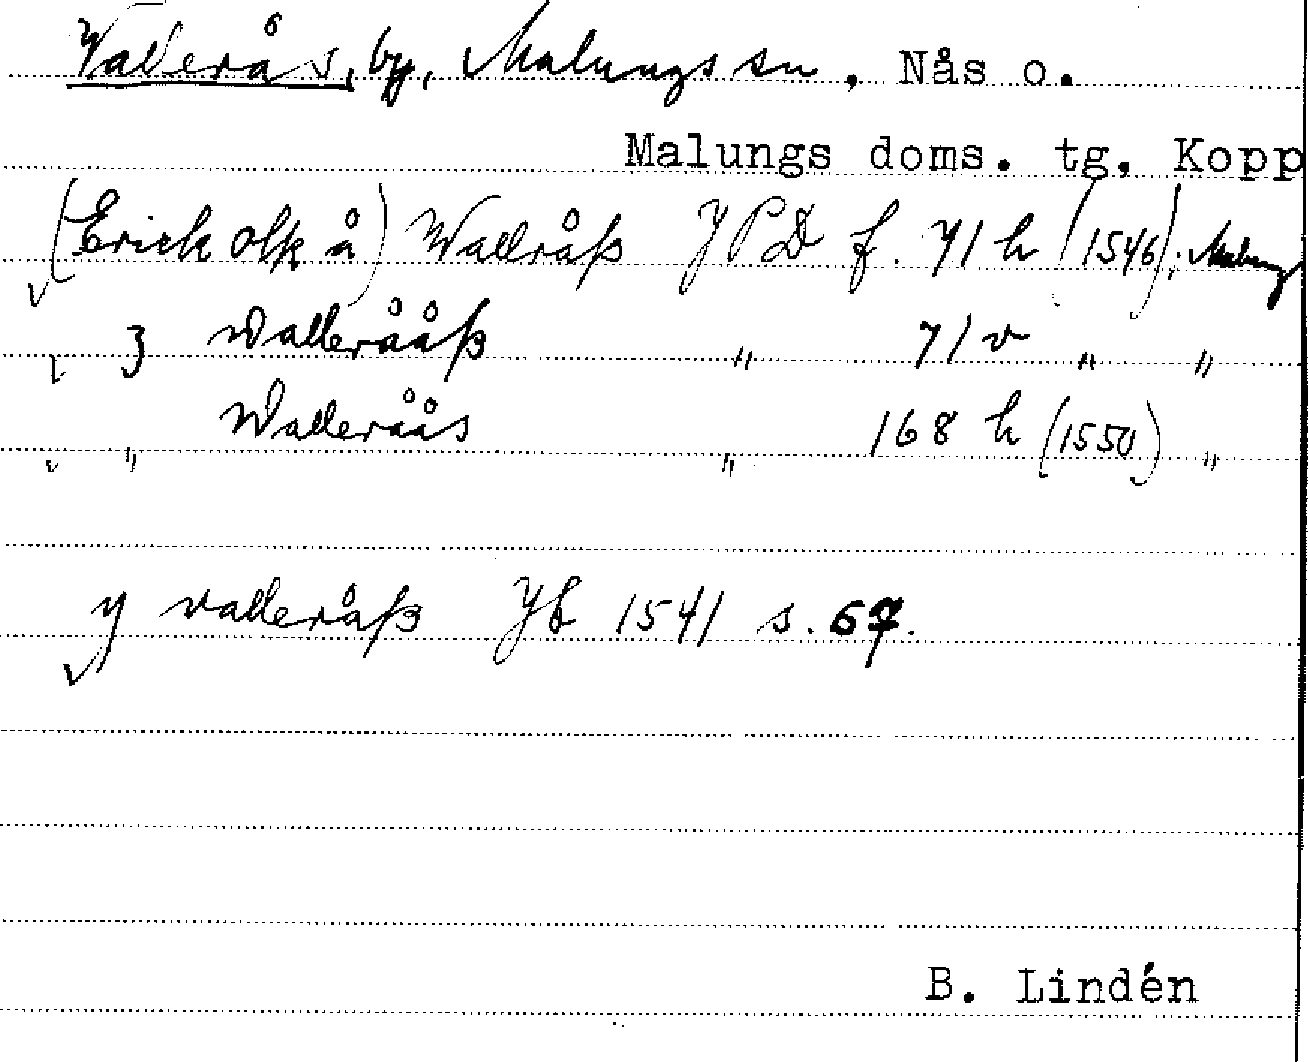 Vallerås, by, Malungs sn, Nås o.
Malungs doms. tg. Kopp
(Erick Olß å) Wallråß JPD f. 71 h (1546); Malung
Wallerååß " 71 v " "
" Walleråås " 168 h (1550) "
y valleråß Jb 1541 s. 67.
B. Lindén